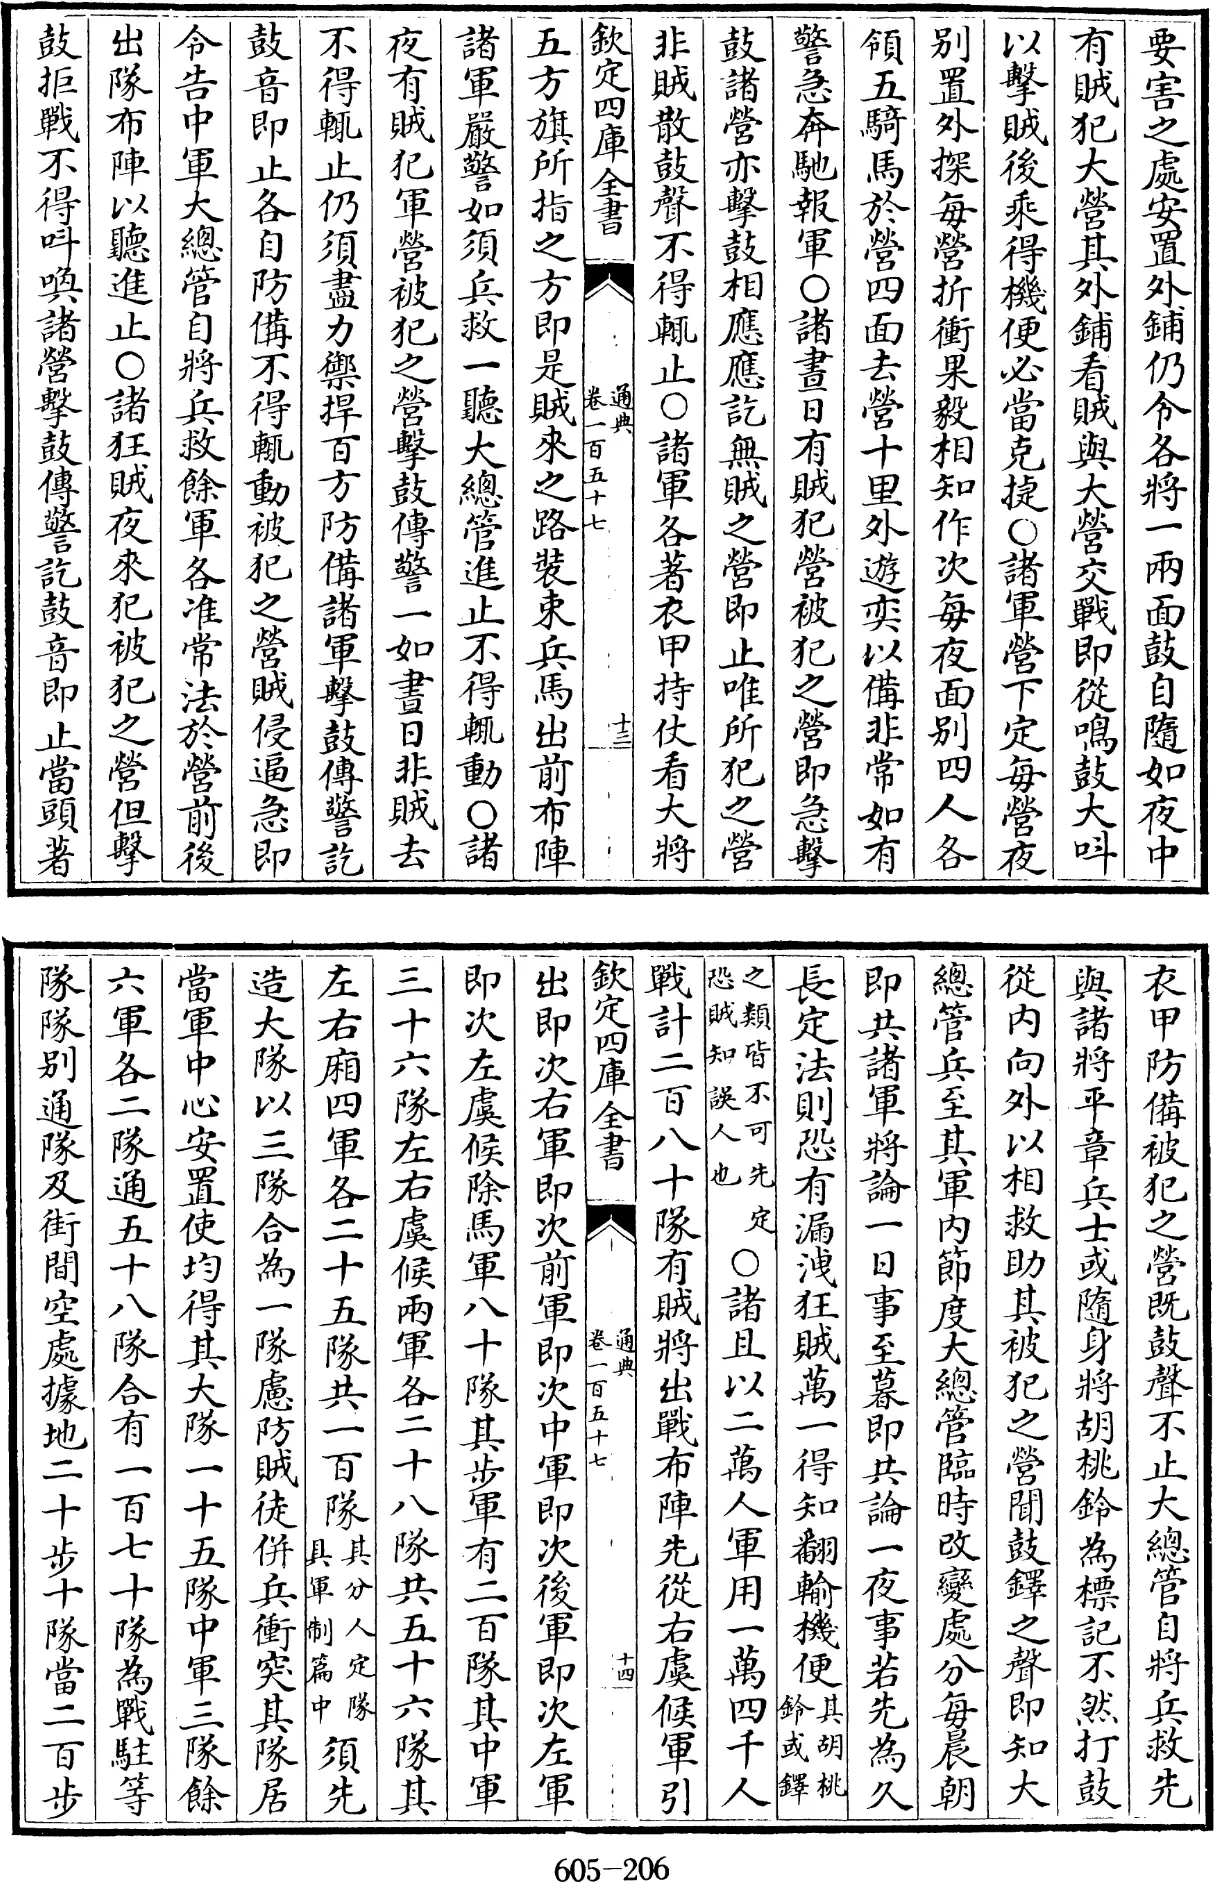 要害之處安置外鋪仍令各將一兩面鼓自隨如夜中
有賊犯大營其外鋪看賊與大營交戰即從鳴鼓大呌
以擊賊後乘得機便必當克捷〇諸軍營下定每營夜
別置外探每營折衝果毅相知作次每夜面別四人各
領五騎馬於營四面去營十里外遊奕以備非常如有
警急奔馳報軍〇諸晝日有賊犯營被犯之營即急擊
鼓諸營亦擊鼓相應應訖無賊之營即止唯所犯之營
非賊散鼓聲不得輒止〇諸軍各著衣甲持仗看大將
欽定四庫全書
通典
卷一百五十七
十三
五方旗所指之方即是賊來之路裝束兵馬出前布陣
諸軍嚴警如須兵救一聽大總管進止不得輒動〇諸
夜有賊犯軍營被犯之營擊鼓傳警一如晝日非賊去
不得輒止仍須盡力禦捍百方防備諸軍擊鼓傳警訖
鼓音即止各自防備不得輒動被犯之營賊侵逼急即
令告中軍大總管自將兵救餘軍各准常法於營前後
出隊布陣以聽進止〇諸狂賊夜來犯被犯之營但擊
鼓拒戰不得呌喚諸營擊鼓傳警訖鼓音即止當頭著
衣甲防備被犯之營既鼓聲不止大總管自將兵救先
與諸將平章兵士或隨身將胡桃鈴為標記不然打鼓
從内向外以相救助其被犯之營聞鼓鐸之聲即知大
總管兵至其軍内節度大總管臨時改變處分每晨朝
即共諸軍將論一日事至暮即共論一夜事若先為久
長定法則恐有漏洩狂賊萬一得知翻輸機便其胡桃鈴或鐸
之類皆不可先定恐賊知誤人也〇諸且以二萬人軍用一萬四千人
戰計二百八十隊有賊將出戰布陣先從右虞候軍引
欽定四庫全書
通典
卷一百五十七
十四
出即次右軍即次前軍即次中軍即次後軍即次左軍
即次左虞候除馬軍八十隊其步軍有二百隊其中軍
三十六隊左右虞候兩軍各二十八隊共五十六隊其
左右廂四軍各二十五隊共一百隊其分人定隊具軍制篇中須先
造大隊以三隊合為一隊慮防賊徒併兵衝突其隊居
當軍中心安置使均得其大隊一十五隊中軍三隊餘
六軍各二隊通五十八隊合有一百七十隊為戰駐等
隊隊別通隊及街間空處據地二十步十隊當二百步
605-206